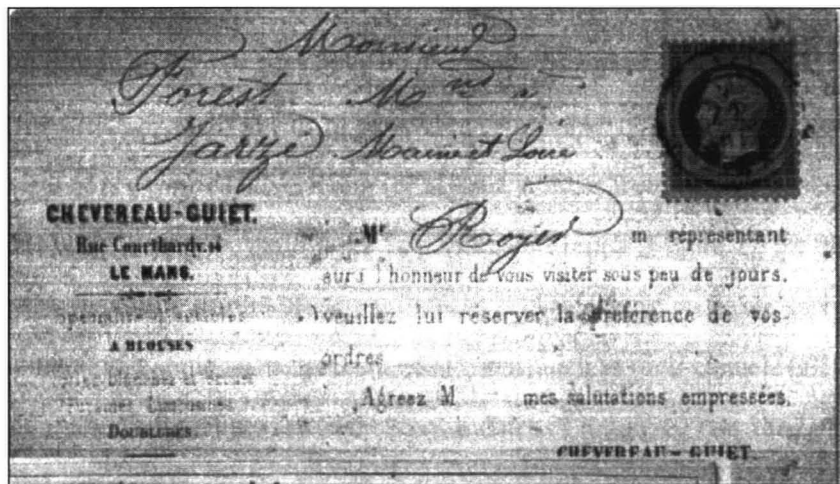 Monsieur
Forest Mnd a
Jarzé Maine et Loire
CHEVEREAU-GUIET.
Rue Courthardy. 14
LE MANS.
A BLOUSES
DOUBLURES.
Mr Royer m représentant
aura l'honneur de vous visiter sous peu de jours,
veuillez lui réserver la préférence de vos
ordres
Agréez M mes salutations empressées,
CHEVEREAU-GUIET